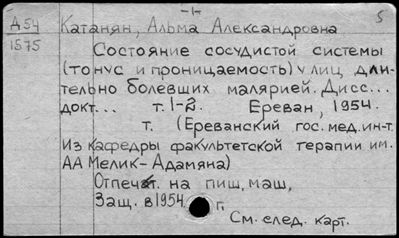 -1-
5
Д54
1575
Катанян, Альма Александровна
Состояние сосудистой системы
(тонус и проницаемость) у лиц, дли-
тельно болевших малярией. Дисс...
докт... т. 1-2. Ереван, 1954.
т. (Ереванский гос. мед. ин-т.
Из кафедры факультетской терапии им.
АА Мелик-Адамяна)
Отпечат. на пиш, маш,
Защ. в 1954 г.
См. след. карт.